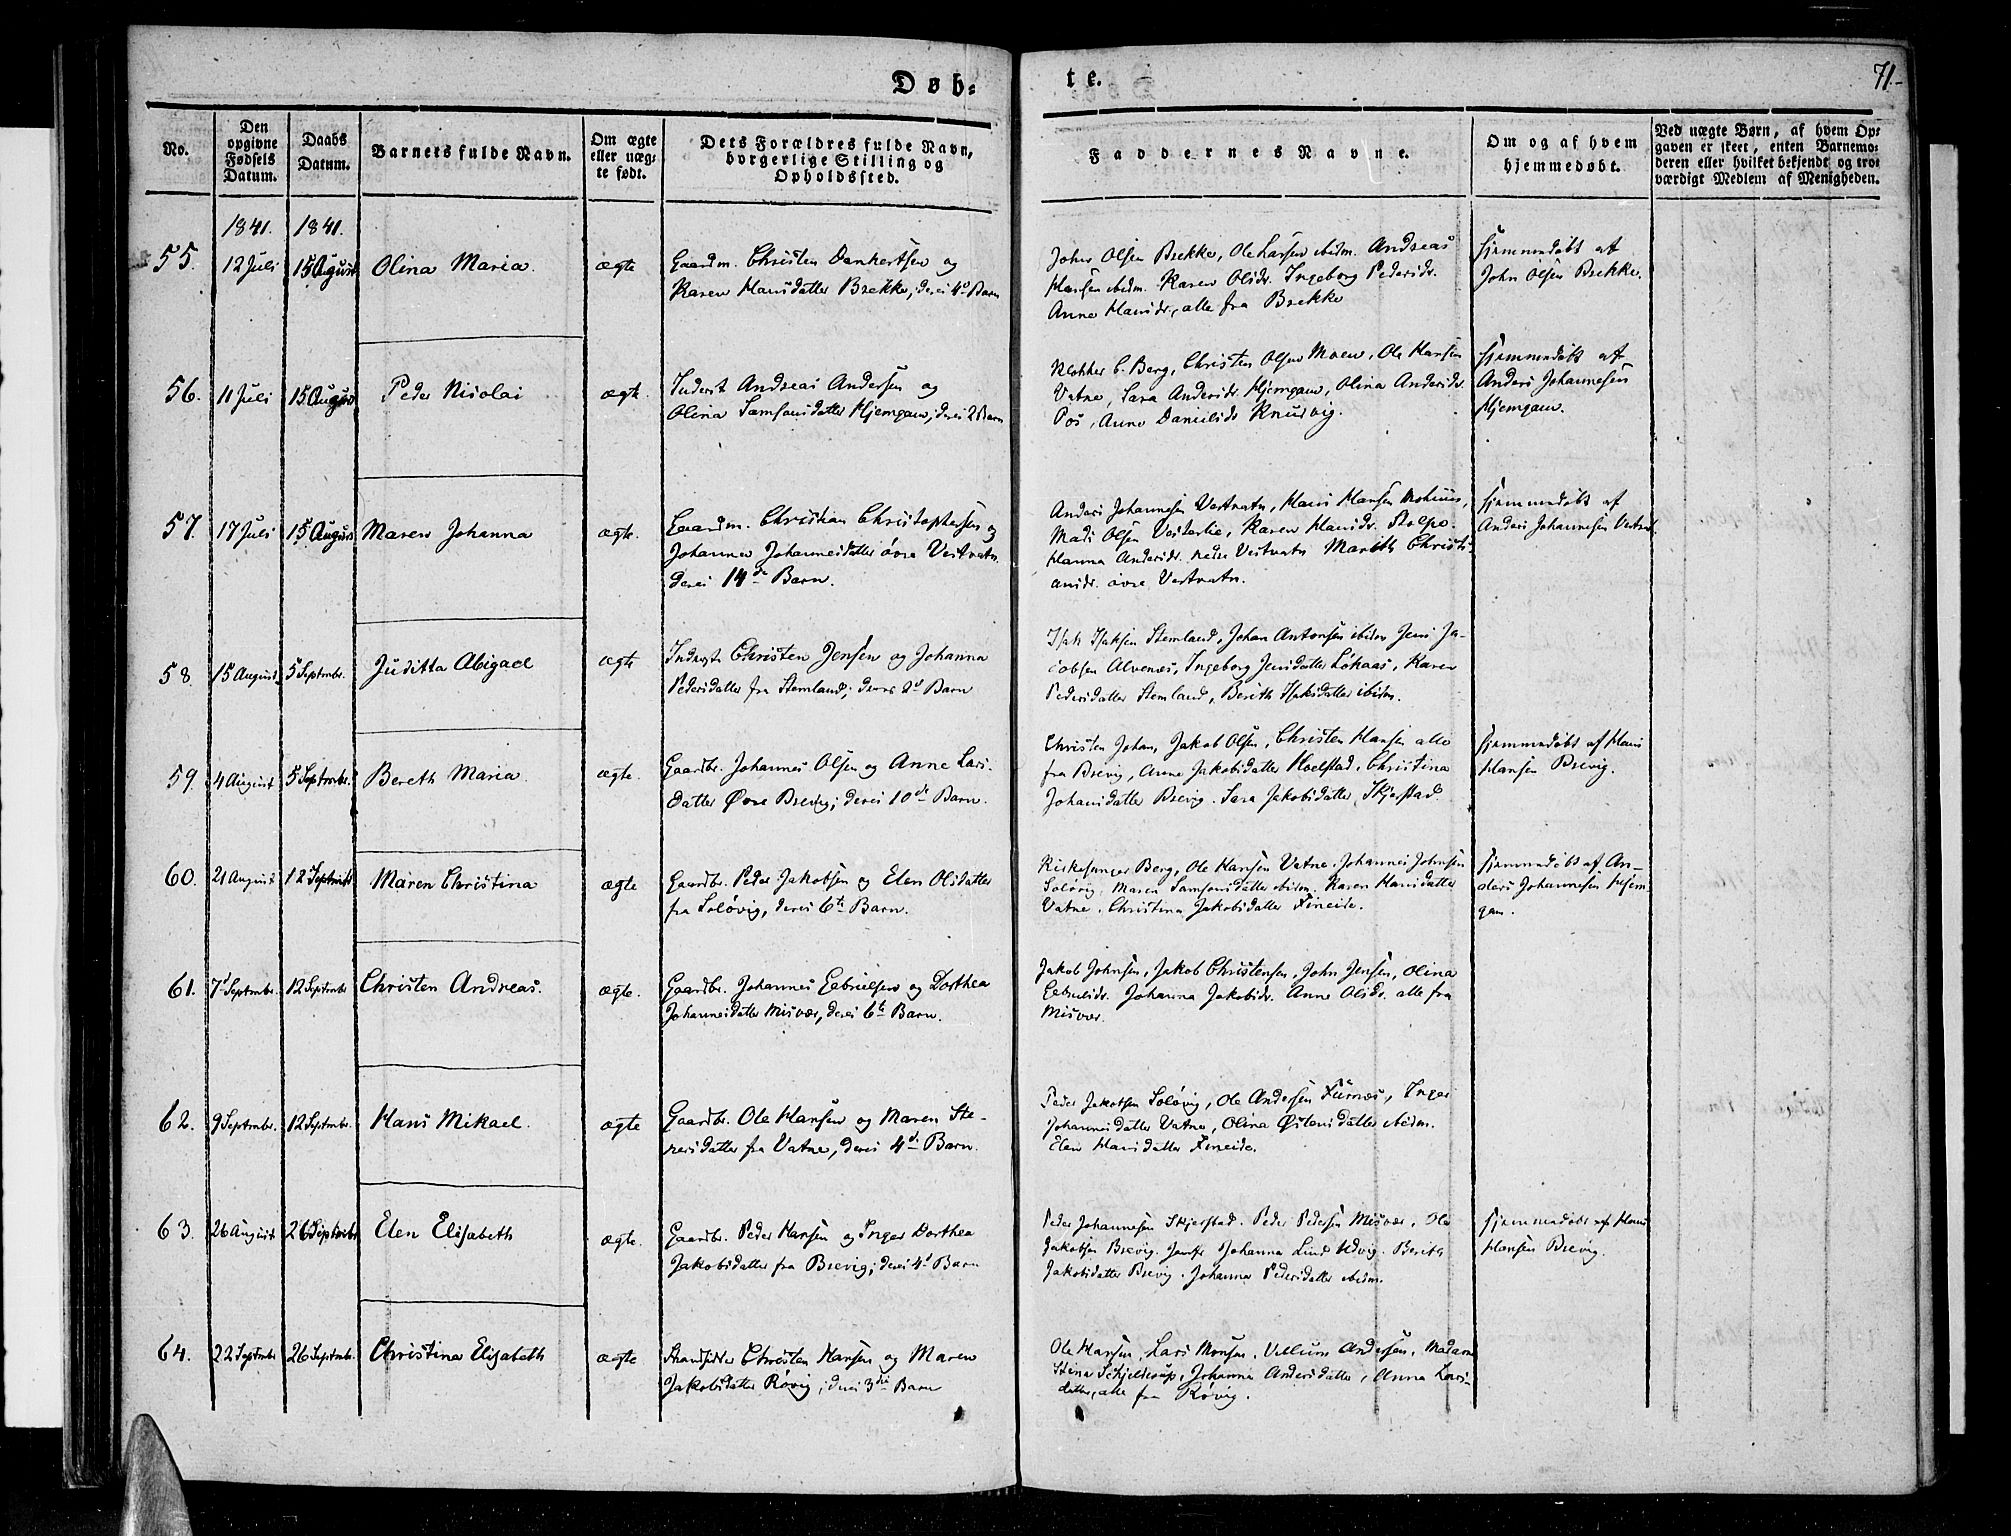 Døb-
te.
71.
No.
Den opgivne Fødsels Datum.
Daabs Datum.
Barnets fulde Navn.
Om ægte eller uægte født.
Dets Forældres fulde Navn, borgerlige Stilling og Opholdssted.
Faddernes Navne.
Om og af hvem hjemmedøbt.
Ved uægte Børn, af hvem Opgaven er skeet, enten Barnemoderen eller hvilket bekjendt og troværdigt Medlem af Menigheden.
1841. 1841.
55. 12 Juli 15 August Olina Maria. ægte
Gaardm. Christen Dankertsen og
Karen Hansdatter Brekke, deres 4d Barn
John Olsen Brekke, Ole Larsen ibidm. Andreas
Hansen ibidm. Karen Olsdr. Ingeborg Pedersdr.
Anne Hansdr., alle fra Brekke
Hjemmedøbt af
John Olsen Brekke.
56. 11 Juli 15 August Peder Nicolai ægte.
Inderst Andreas Andersen og
Olina Samsonsdatter Hjemgam, deres 2 Barn
Klokker C. Berg, Christen Olsen Moen, Ole Hansen
Vatne, Sara Andersdr. Hjemgam, Olina Andersdr.
Pos, Anne Danielsdr Knudvig.
Hjemmedøbt af
Anders Johannesen
Hjemgam.
57. 17 Juli 15 August Maren Johanna ægte.
Gaardm. Christian Christophersen og
Johanna Johannesdatter øvre Vestvatn.
deres 14de Barn.
Anders Johannesen Vestvatn, Hans Hansen
Mads Olsen Vesterlie, Karen Hansdr. Stolpe.
Hanna Andersdr. nedre Vestvatn Mareth Christi-
ansdr. øvre Vestvatn.
Hjemmedøbt af
Anders Johannesen Vestvat.
58. 15 August 5 Septmbr. Juditta Abigael ægte
Inderst Christen Jensen og Johanna
Pedersdatter fra Stemland; deres 2d Barn
Isak Isaksen Stemland, Johan Antonsen ibidm Jens Ja-
cobsen Alvenes, Ingeborg Jensdatter Løkaas, Karen
Pedersdatter Stemland, Berith Isaksdatter ibidm.
59. 4 August 5 Septmbr. Bereth Maria ægte.
Gaardbr. Johannes Olsen og Anne Lars-
datter Øvre Brevig; deres 10de Barn.
Christen Johan, Jakob Olsen, Christen Hansen alle
fra Brevig, Anne Jakobsdatter Hoelstad. Christina
Johansdatter Brevig. Sara Jakobsdatter, Skjerstad.
Hjemmedøbt af Hans
Hansen Brevig.
60. 21 August 12 Septmbr Maren Christina ægte
Gaardbr. Peder Jakobsen og Elen Olsdatter
fra Soløvig, deres 6te Barn.
Kirkesanger Berg, Ole Hansen Vatne. Johannes Johnsen
Soløvig. Maren Samsonsdatter ibidm. Karen Hansdatter
Vatne. Christina Jakobsdatter Fineide.
Hjemmedøbt af An-
ders Johannesen Hjem-
gam.
61. 7 Septmbr. 12 Septmbr Christen Andreas. ægte.
Gaardbr. Johannes Gabrielsen og Dorthea
Johannesdatter Misvær, deres 6te Barn.
Jakob Johnsen, Jakob Christensen, John Jensen, Olina
Gabrielsdr. Johanna Jakobsdr. Anne Olsdr. alle fra
Misvær.
62. 9 Septmbr. 12 Septmbr. Hans Mikael. ægte
Gaardbr. Ole Hansen og Maren Ste-
nersdatter fra Vatne, deres 4de Barn.
Peder Jakobsen Soløvig, Ole Andersen Furnæs, Inger
Johannesdatter Vatne, Olina Østensdatter ibidm.
Elen Hansdatter Fineide.
63. 26 August 26 Septmbr Elen Elisabeth ægte.
Gaardbr. Peder Hansen og Inger Dorthea
Jakobsdatter fra Brevig; deres 4d Barn
Peder Johannesen Skjerstad. Peder Pedersen Misvær. Ole
Jakobsen Brevig. Jomfr Johanna Lund Udvig. Berith
Jakobsdatter Brevig. Johanna Pedersdatter ibidm.
Hjemmedøbt af Hans
Hansen Brevig.
64. 22 Septmbr 26 Septmbr. Christina Elisabeth ægte
Strandsidder Christen Hansen og Maren
Jakobsdatter Røvig; deres 3die Barn
Ole Hansen, Lars Monsen, Villum Andersen, Madame
Stina Schjelderup, Johanna Andersdatter, Anna Lars-
datter, alle fra Røvig.